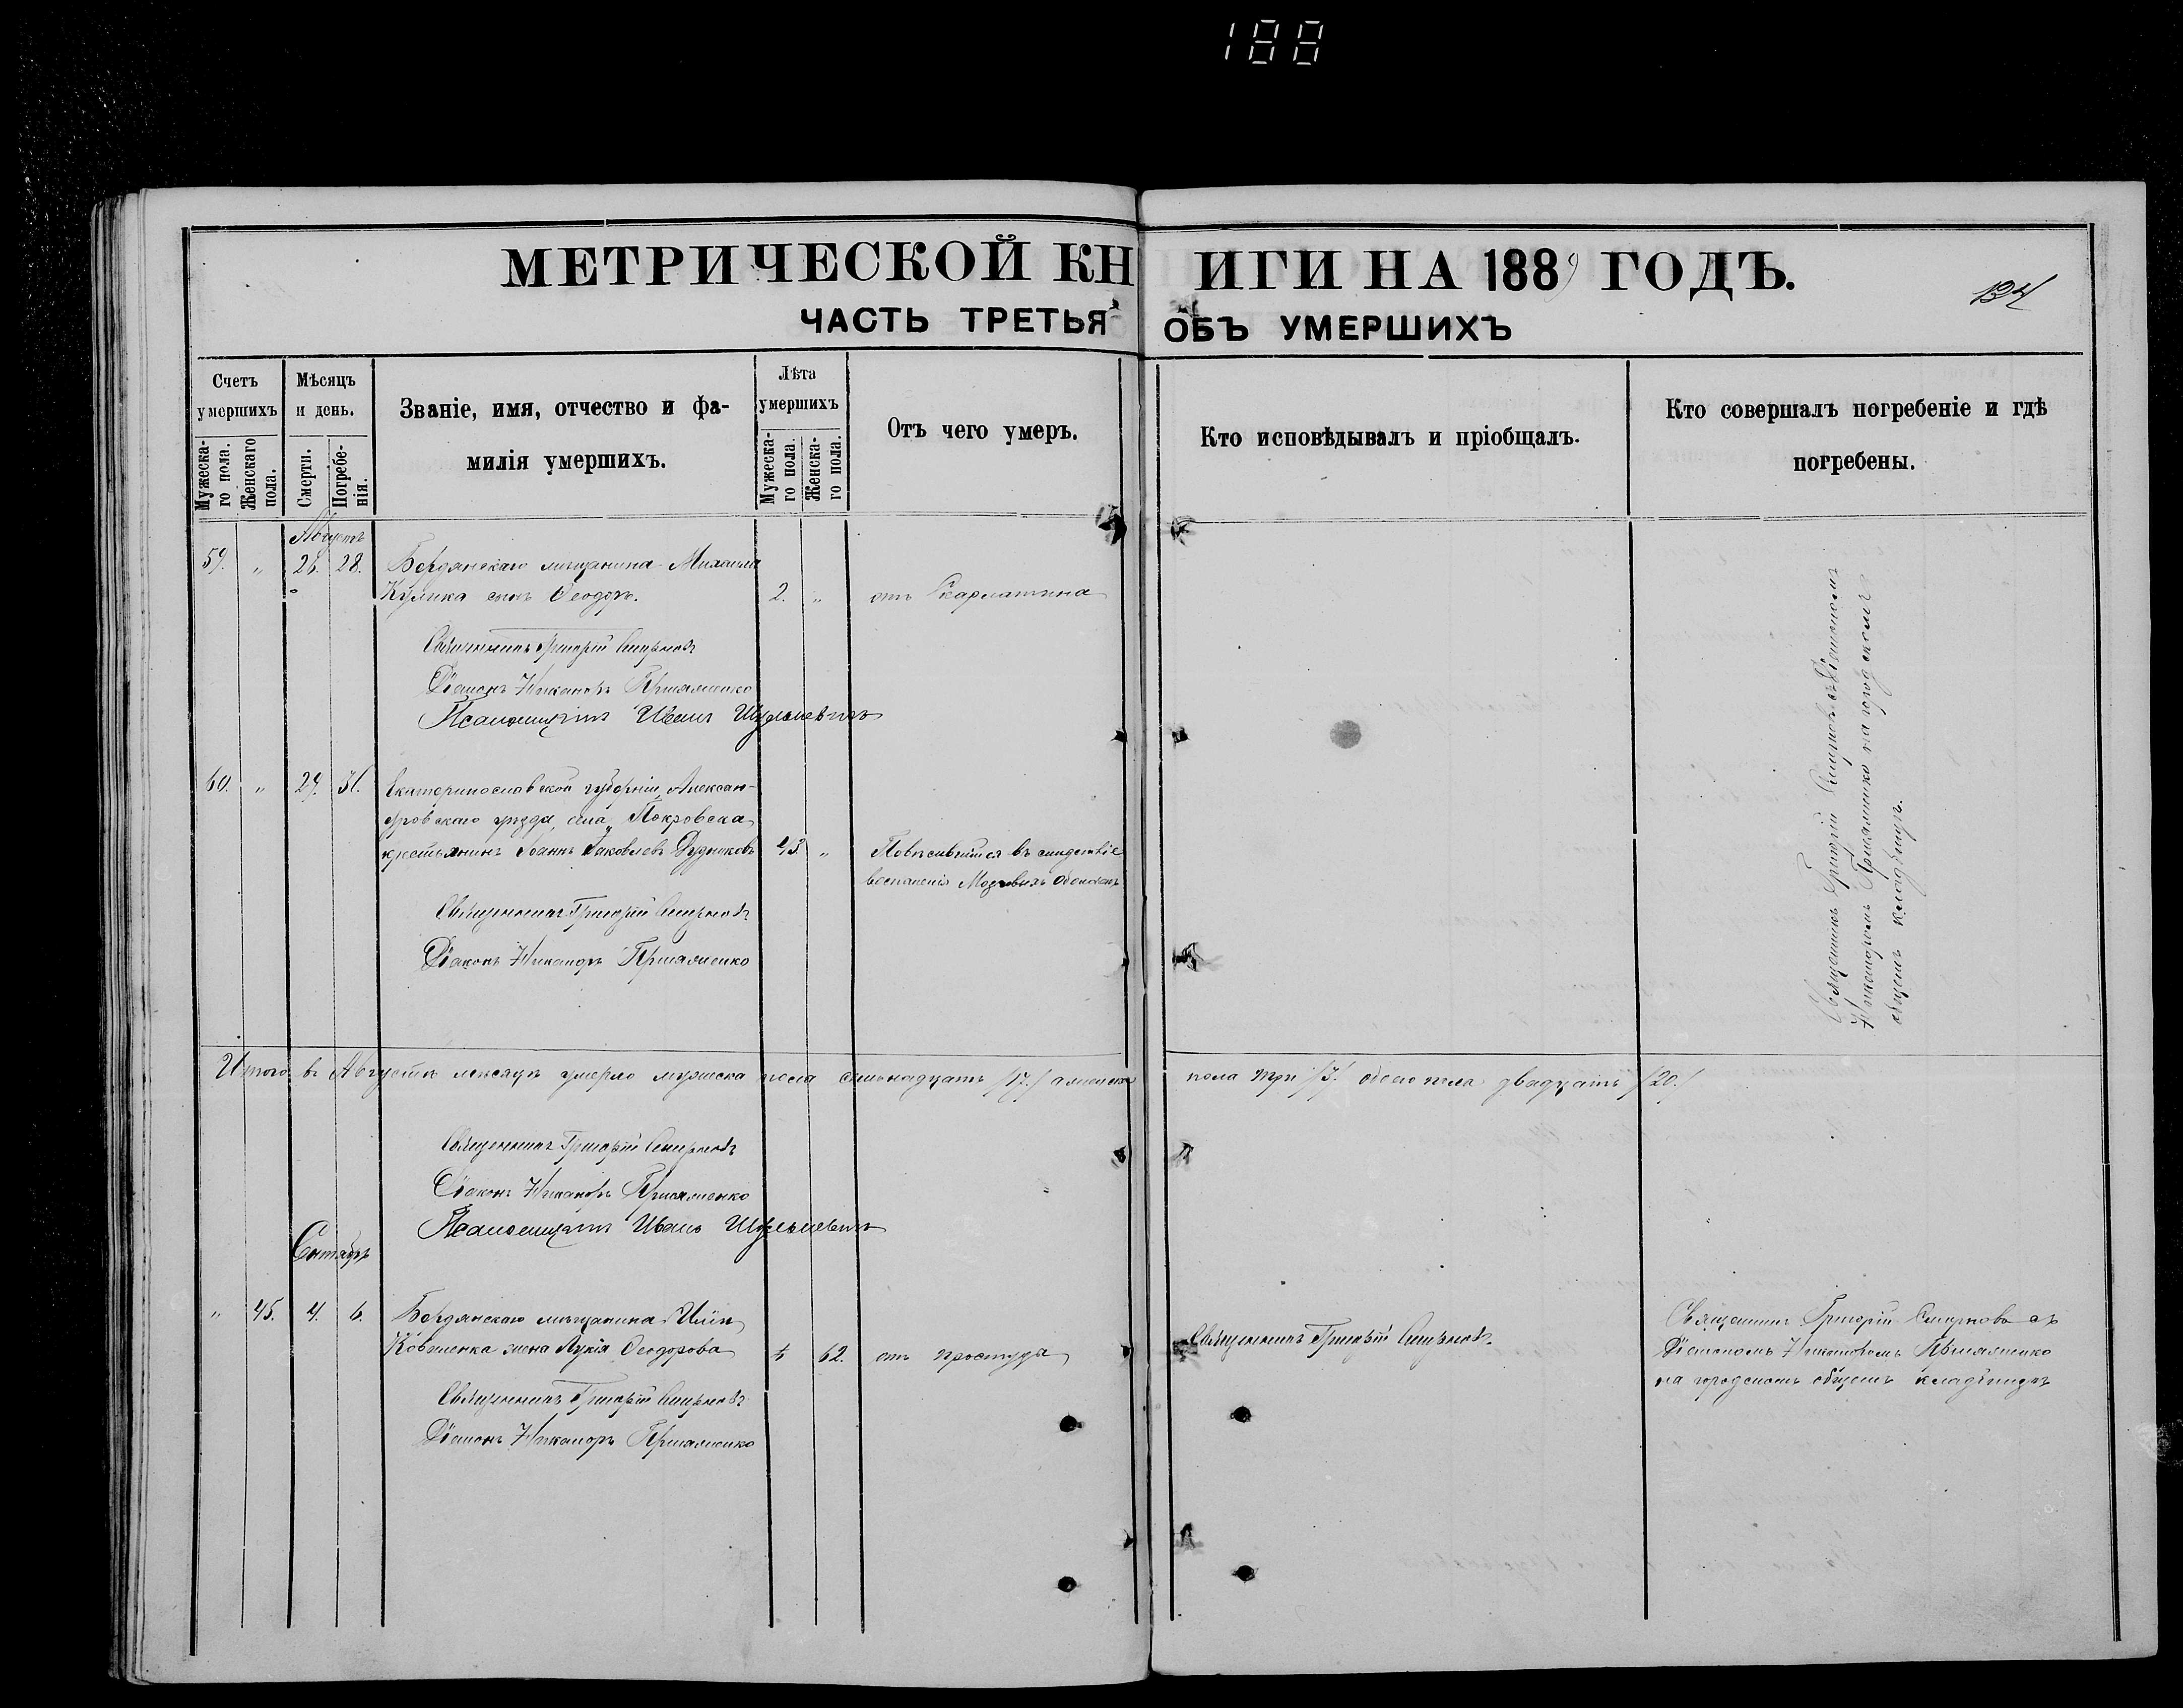 188
МЕТРИЧЕСКОЙ КНИГИ НА 1889 ГОДЪ.
134
ЧАСТЬ ТРЕТЬЯ ОБЪ УМЕРШИХЪ
Счетъ умершихъ
Мужеска-го пола.
Женскаго пола.
Мѣсяцъ и день.
Смерти.
Погребе-нія.
Званіе, имя, отчество и фа-
милія умершихъ.
Лѣта умершихъ
Мужеска-го пола.
Женска-го пола.
Отъ чего умеръ.
Кто исповѣдывалъ и пріобщалъ.
Кто совершалъ погребеніе и гдѣ
погребены.
Августъ
59. „ 26. 28. Бердянскаго мѣщанина Михаила
Кулика сынъ Ѳеодоръ. 2. „ отъ Скарлатина
Священникъ Григорій Смирновъ
Діаконъ Никаноръ Присяженко
Псаломщикъ Иванъ
60. „ 29. 31. Екатеринославской губерніи, Алексан-
дровскаго уѣзда, села Покровска
крестьянинъ Іоаннъ Іаковлевъ Рудиковъ 43. „ Повѣсившійся въ слѣдствіе
воспаленія Мозговыхъ Оболочекъ
Священникъ Григорій Смирновъ
Діаконъ Никаноръ Присяженко
Священникъ Григорій Смирновъ съ Діакономъ
Никаноромъ Присяженко на городскомъ
общемъ кладбищѣ.
Итого въ Августѣ мѣсяцѣ умерло мужеска пола семьнадцать /17./ а женска пола три /3./ обоего пола двадцать /20./
Священникъ Григорій Смирновъ
Діаконъ Никаноръ Присяженко
Псаломщикъ Иванъ
Сентябрь
„ 45. 4. 6. Бердянскаго мѣщанина Иліи
Коваленка жена Лукія Ѳеодорова „ 62. отъ простуды
Священникъ Григорій Смирновъ.
Священникъ Григорій Смирновъ съ
Діакономъ Никаноромъ Присяженко
на городскомъ общемъ кладбищѣ
Священникъ Григорій Смирновъ
Діаконъ Никаноръ Присяженко